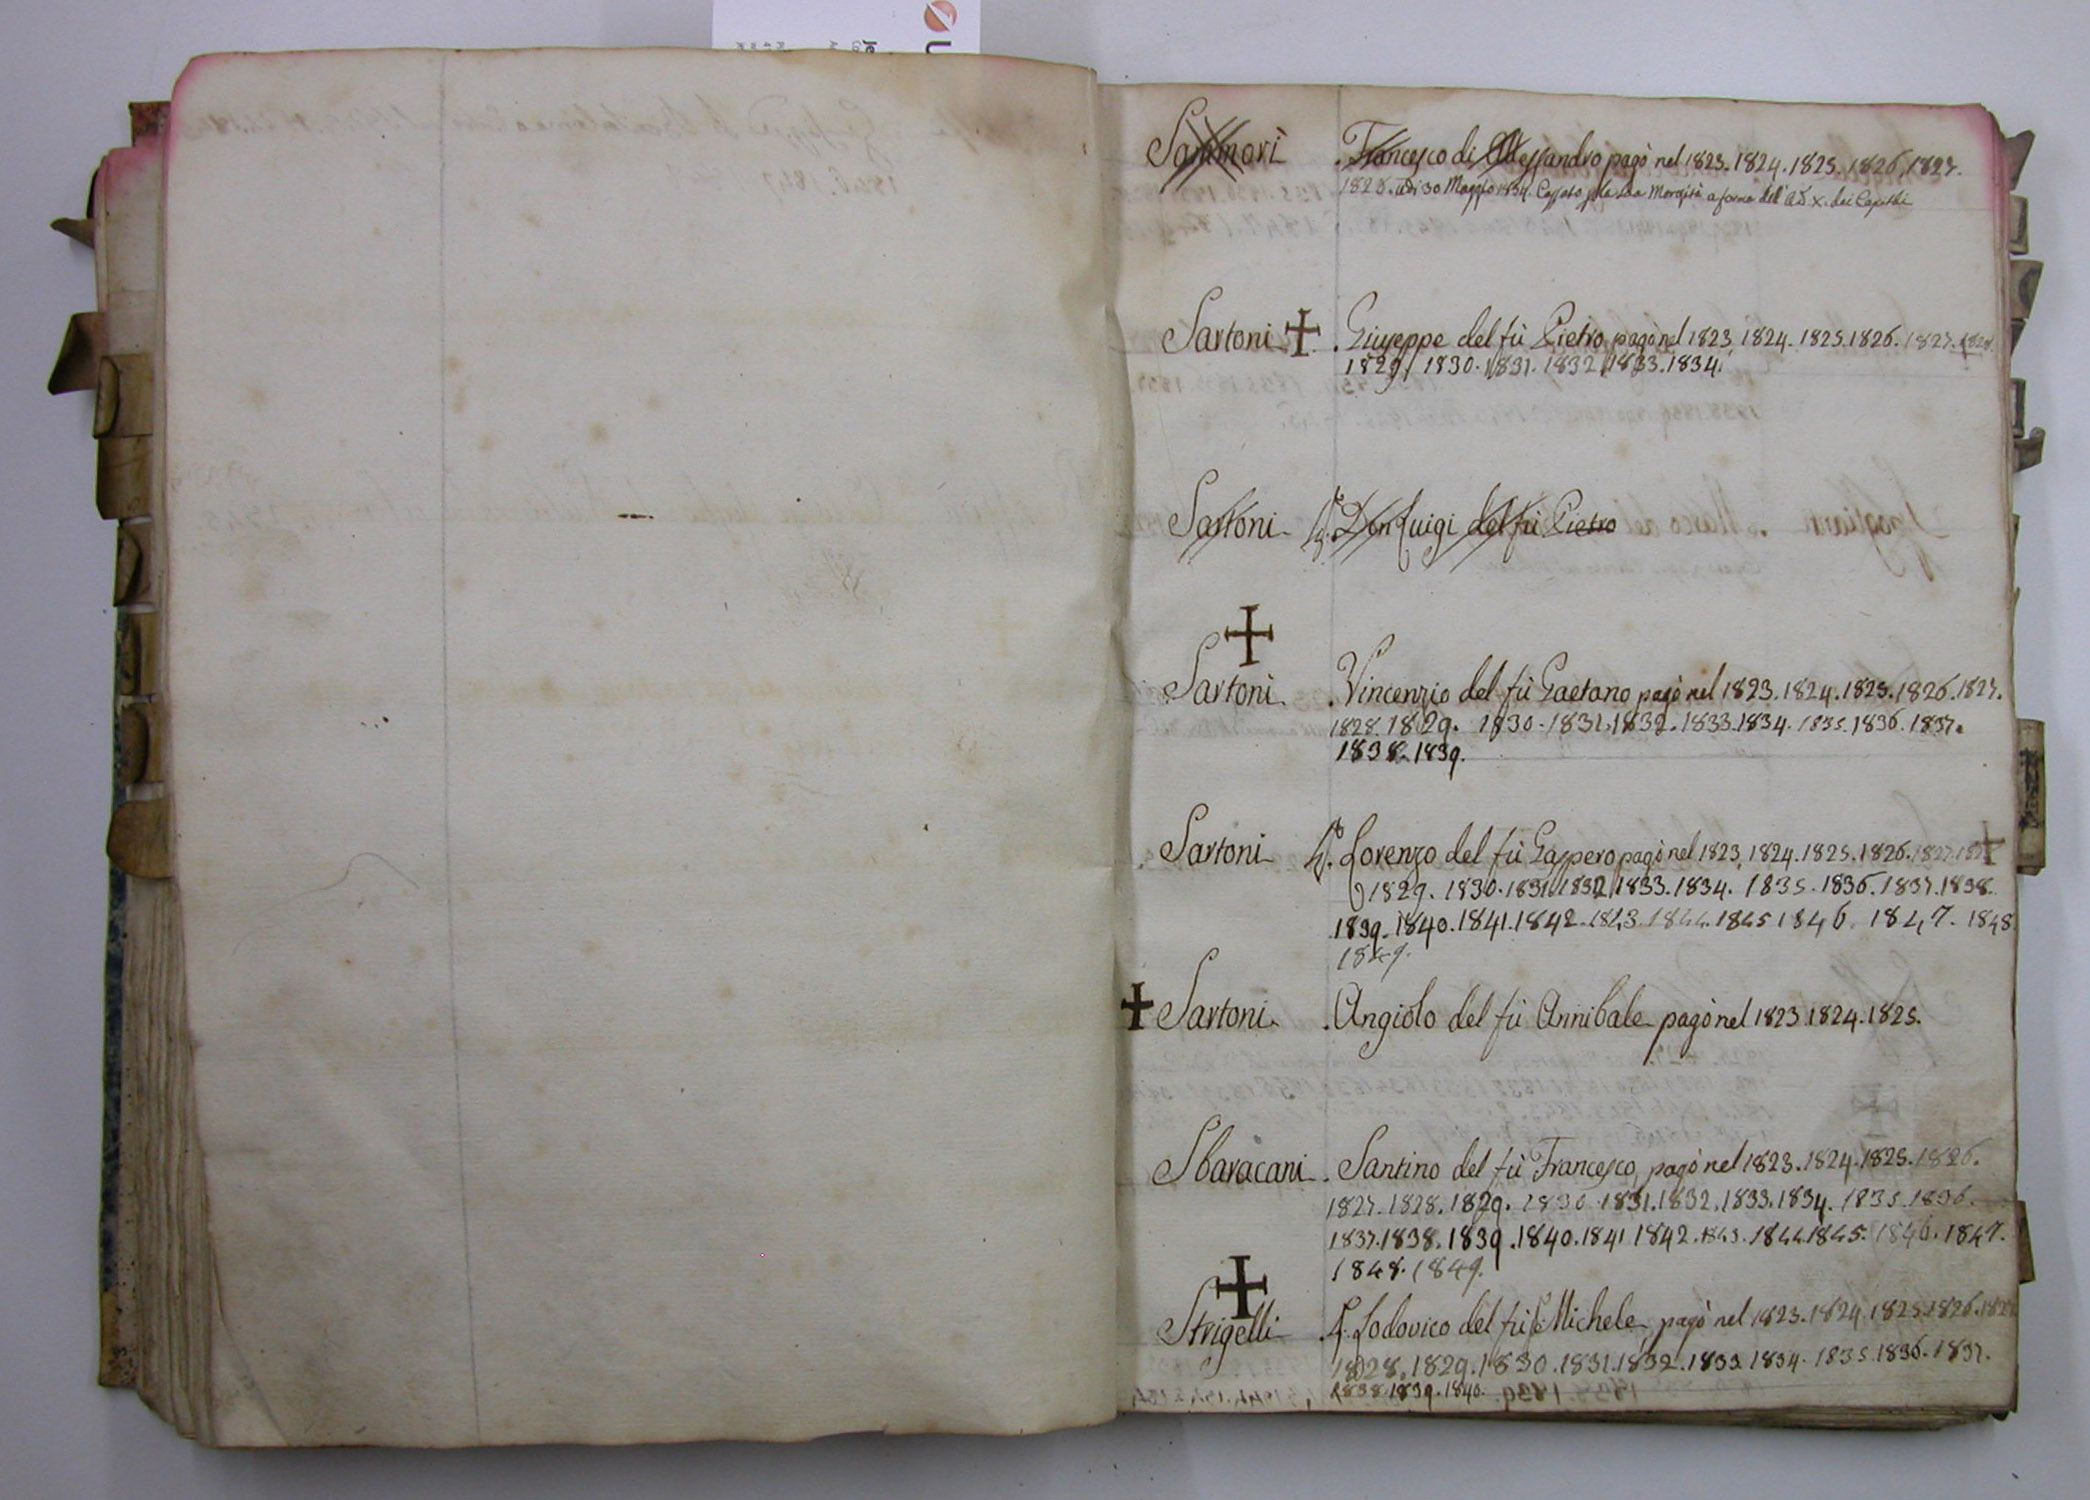 Sammori . Francesco di Alessandro pagò nel 1823. 1824. 1825. 1826. 1827.
1828. adì 30 Maggio 1834. Cassato p la sua Morosità a forma dell' a X. dei Capitoli
Sartoni . Giuseppe del fù Pietro pagò nel 1823. 1824. 1825. 1826. 1827. 1828.
1829. 1830. 1831. 1832. 1833. 1834.
Sartoni Don Luigi del fù Pietro
Sartoni . Vincenzio del fù Gaetano pagò nel 1823. 1824. 1825. 1826. 1827.
1828. 1829. 1830. 1831. 1832. 1833. 1834. 1835. 1836. 1837.
1838. 1839.
Sartoni Lorenzo del fù Gaspero pagò nel 1823. 1824. 1825. 1826. 1827.
1829. 1830. 1831. 1832. 1833. 1834. 1835. 1836. 1837. 1838.
1839. 1840. 1841. 1842. 1843. 1844. 1845 1846. 1847. 1848
1849.
Sartoni . Angiolo del fù Annibale pagò nel 1823 1824. 1825.
Sbaracani . Santino del fù Francesco, pagò nel 1823. 1824. 1825. 1826.
1827. 1828. 1829. 1830 1831. 1832. 1833. 1834. 1835. 1836.
1837. 1838. 1839. 1840. 1841 1842. 1843. 1844. 1845. 1846. 1847.
1848. 1849.
Strigelli Lodovico del fù Michele, pagò nel 1823. 1824. 1825. 1826. 1827
1828. 1829. 1830. 1831. 1832. 1833 1834. 1835. 1836. 1837.
1838. 1839. 1840.